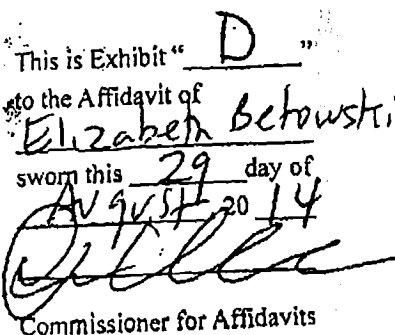 This is Exhibit “ D ”
to the Affidavit of
Elizabeth Betowski
sworn this 29 day of
August 20 14
Commissioner for Affidavits